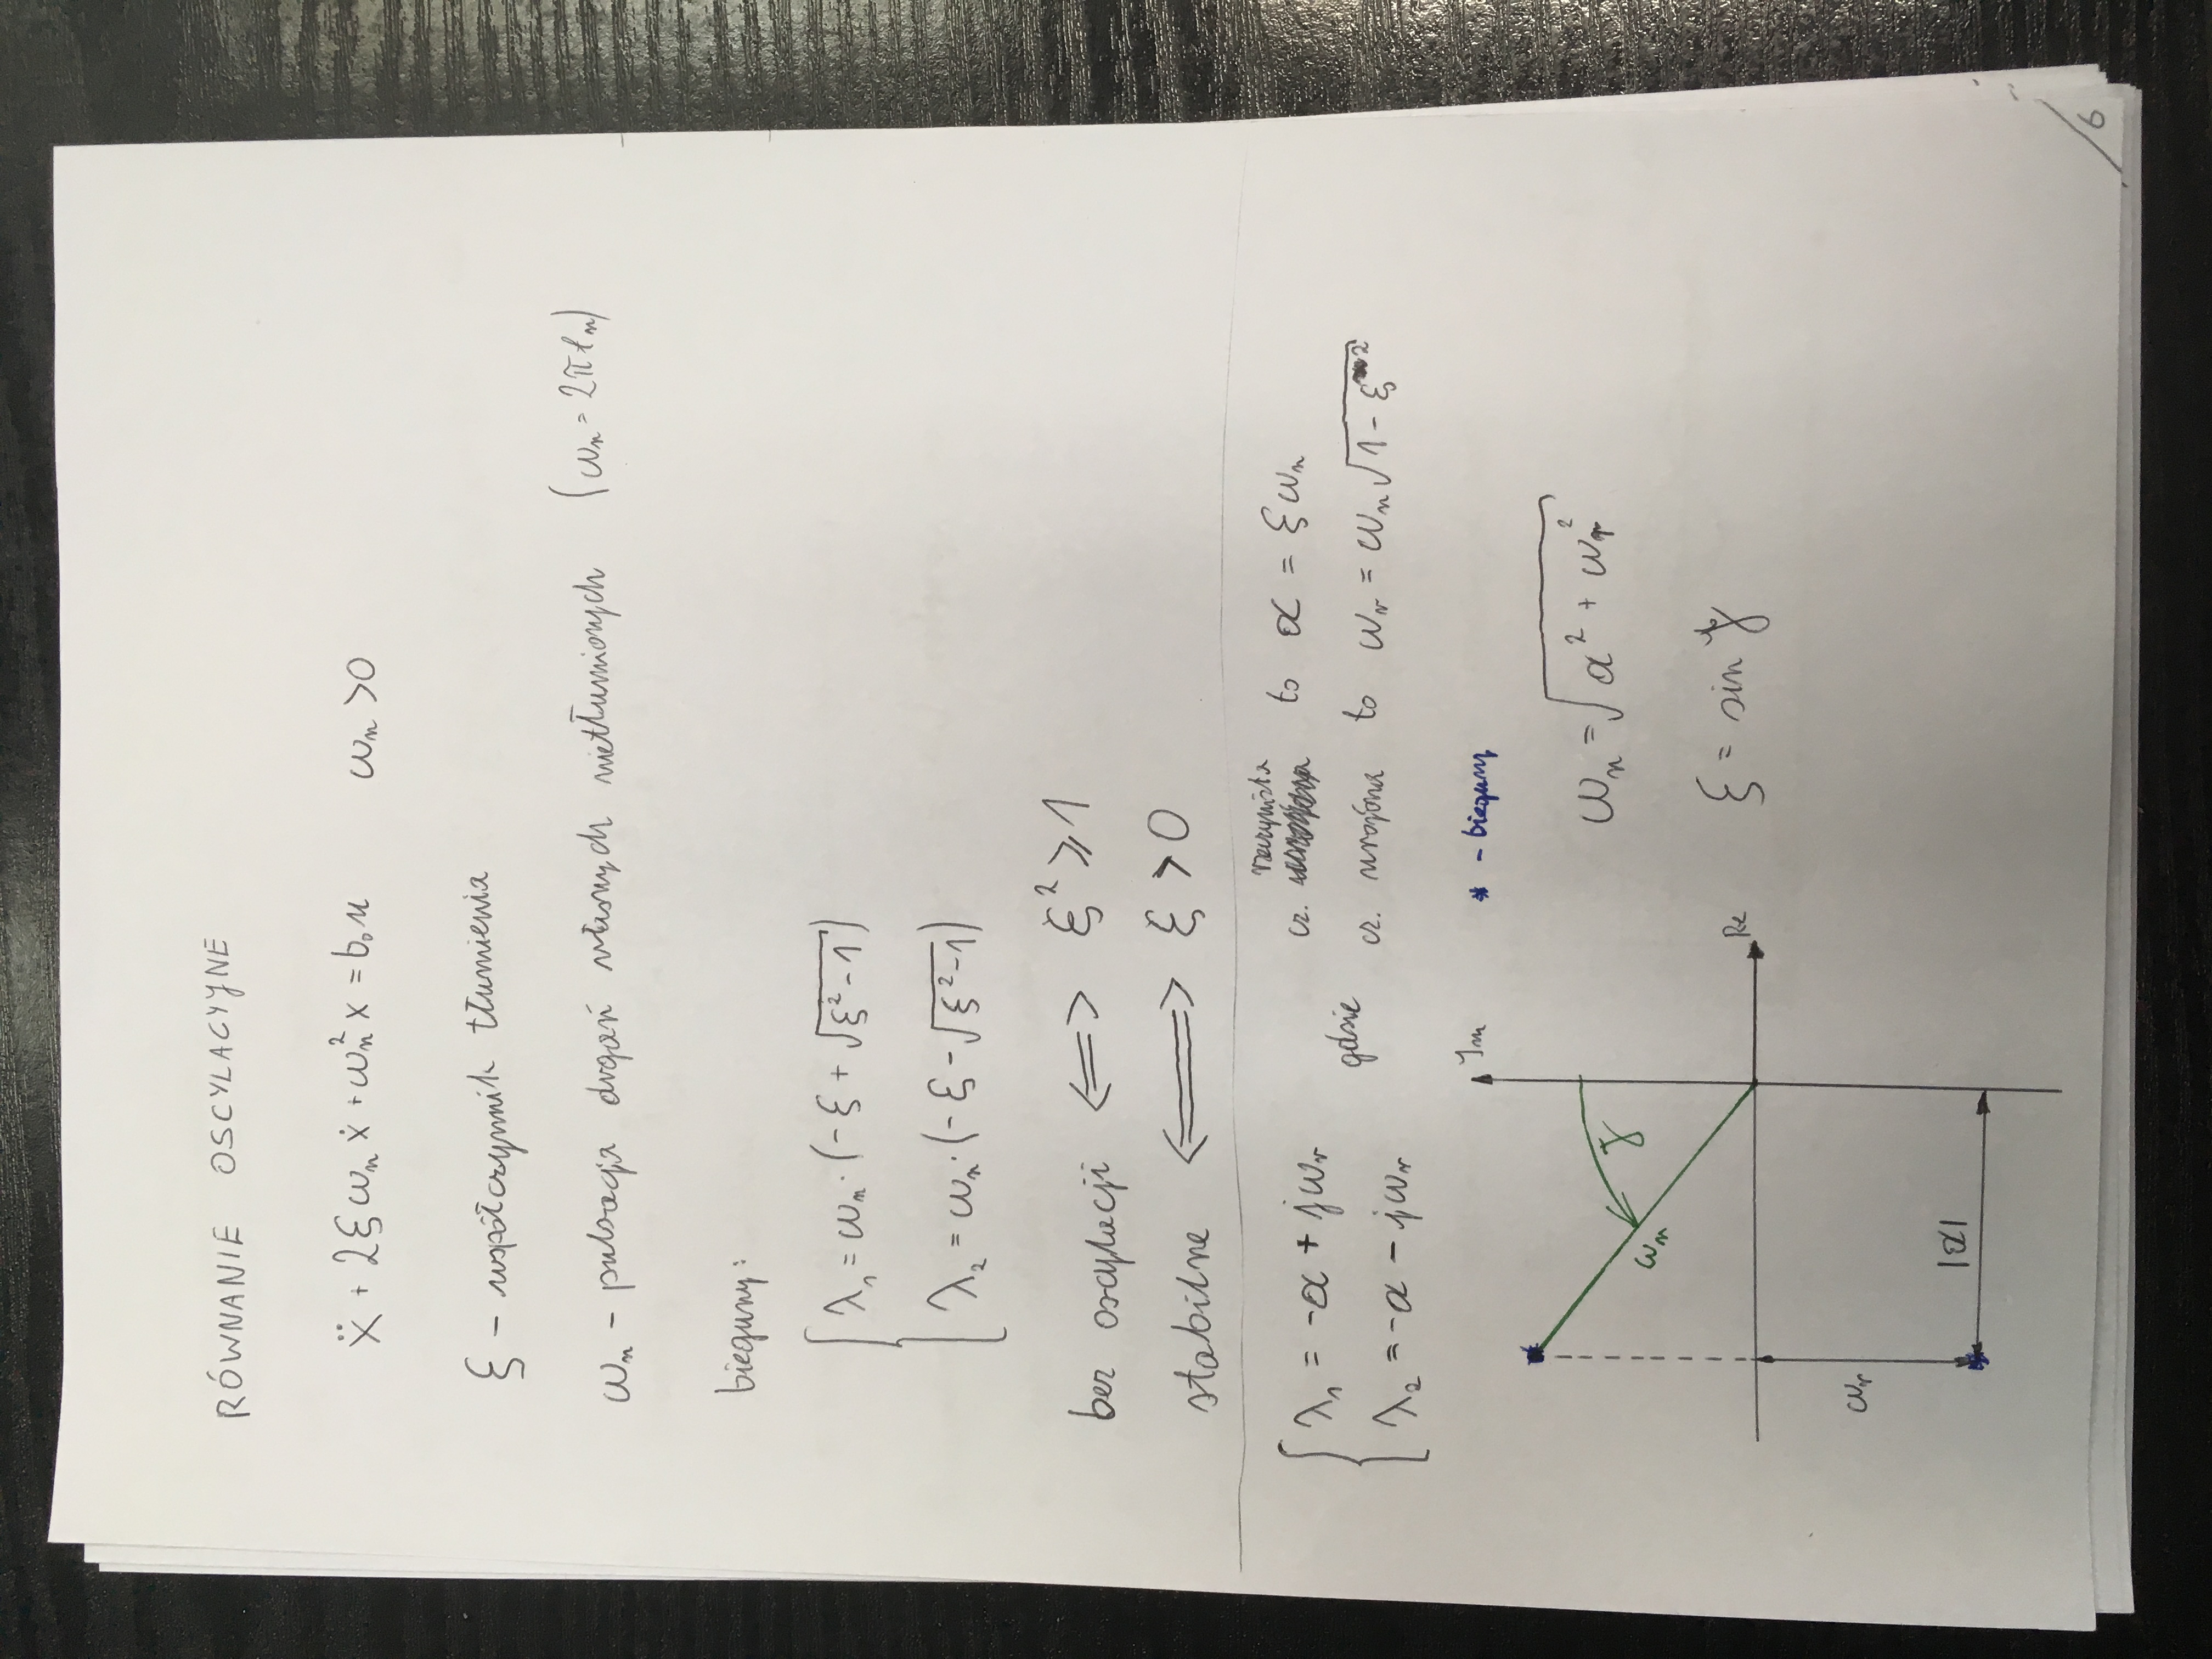 RÓWNANIE OSCYLACYJNE
ẍ + 2ξωₙẋ + ωₙ²x = b₀u ωₙ > 0
ξ – współczynnik tłumienia
ωₙ – pulsacja drgań własnych nietłumionych (ωₙ = 2πfₙ)
bieguny:
λ₁ = ωₙ·(-ξ + √(ξ²-1))
λ₂ = ωₙ·(-ξ - √(ξ²-1))
bez oscylacji ⟺ ξ² ⩾ 1
stabilne ⟺ ξ > 0
λ₁ = -α + jωᵣ
λ₂ = -α - jωᵣ
gdzie
cz. rzeczywista to α = ξωₙ
cz. urojona to ωᵣ = ωₙ√(1-ξ²)
Im
* – bieguny
ωₙ = √(α² + ωᵣ²)
γ
ωₙ
Re
ξ = sin γ
ωᵣ
|α|
6